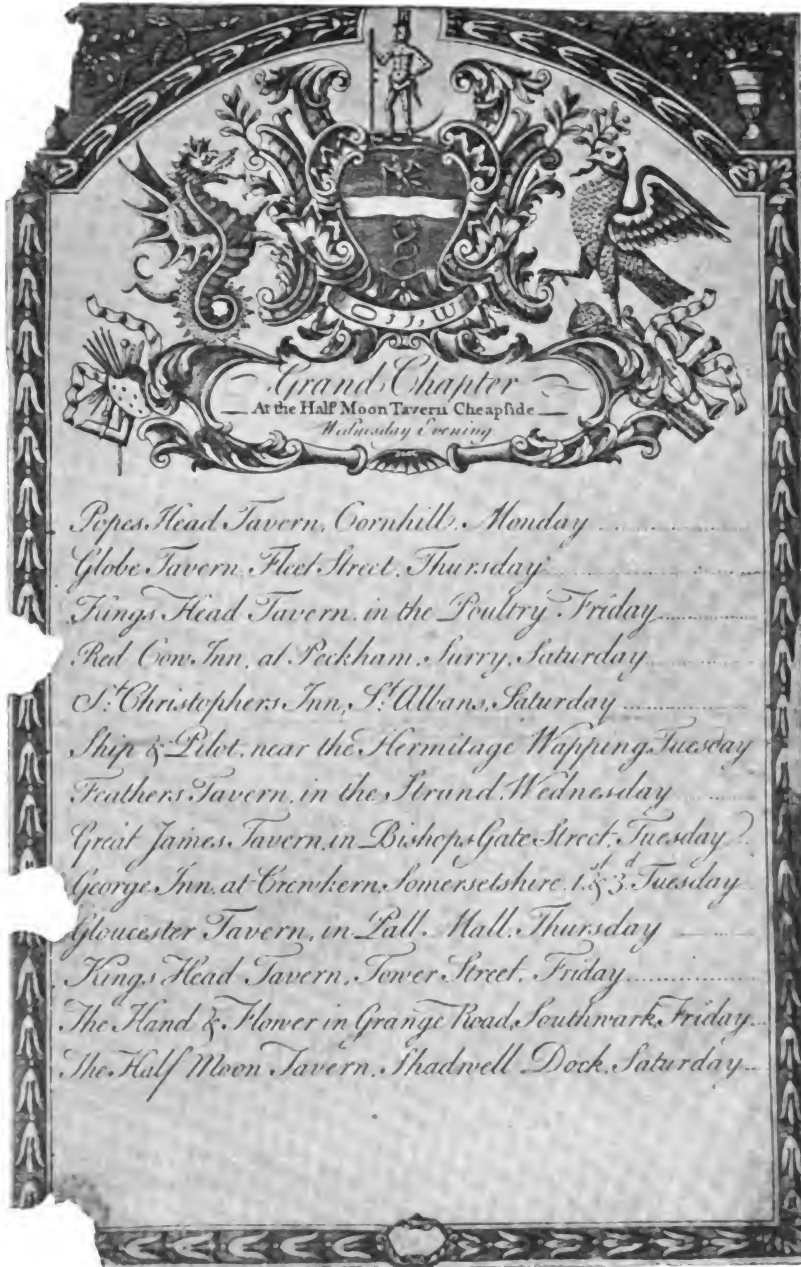 O I L W
Grand Chapter
At the Half Moon Tavern Cheapside
Wednesday Evening
Popes Head Tavern, Cornhill, Monday
Globe Tavern, Fleet Street, Thursday
Kings Head Tavern, in the Poultry Friday
Red Cow Inn, at Peckham, Surry, Saturday
St. Christophers Inn, St. Albans, Saturday
Ship & Pilot, near the Hermitage Wapping Tuesday
Feathers Tavern, in the Strand, Wednesday
Great James Tavern, in Bishops Gate Street, Tuesday
George Inn, at Crewkern, Somersetshire, 1st & 3d Tuesday
Gloucester Tavern, in Pall Mall, Thursday
Kings Head Tavern, Tower Street, Friday
The Hand & Flower in Grange Road, Southwark, Friday
The Half Moon Tavern, Shadwell Dock, Saturday